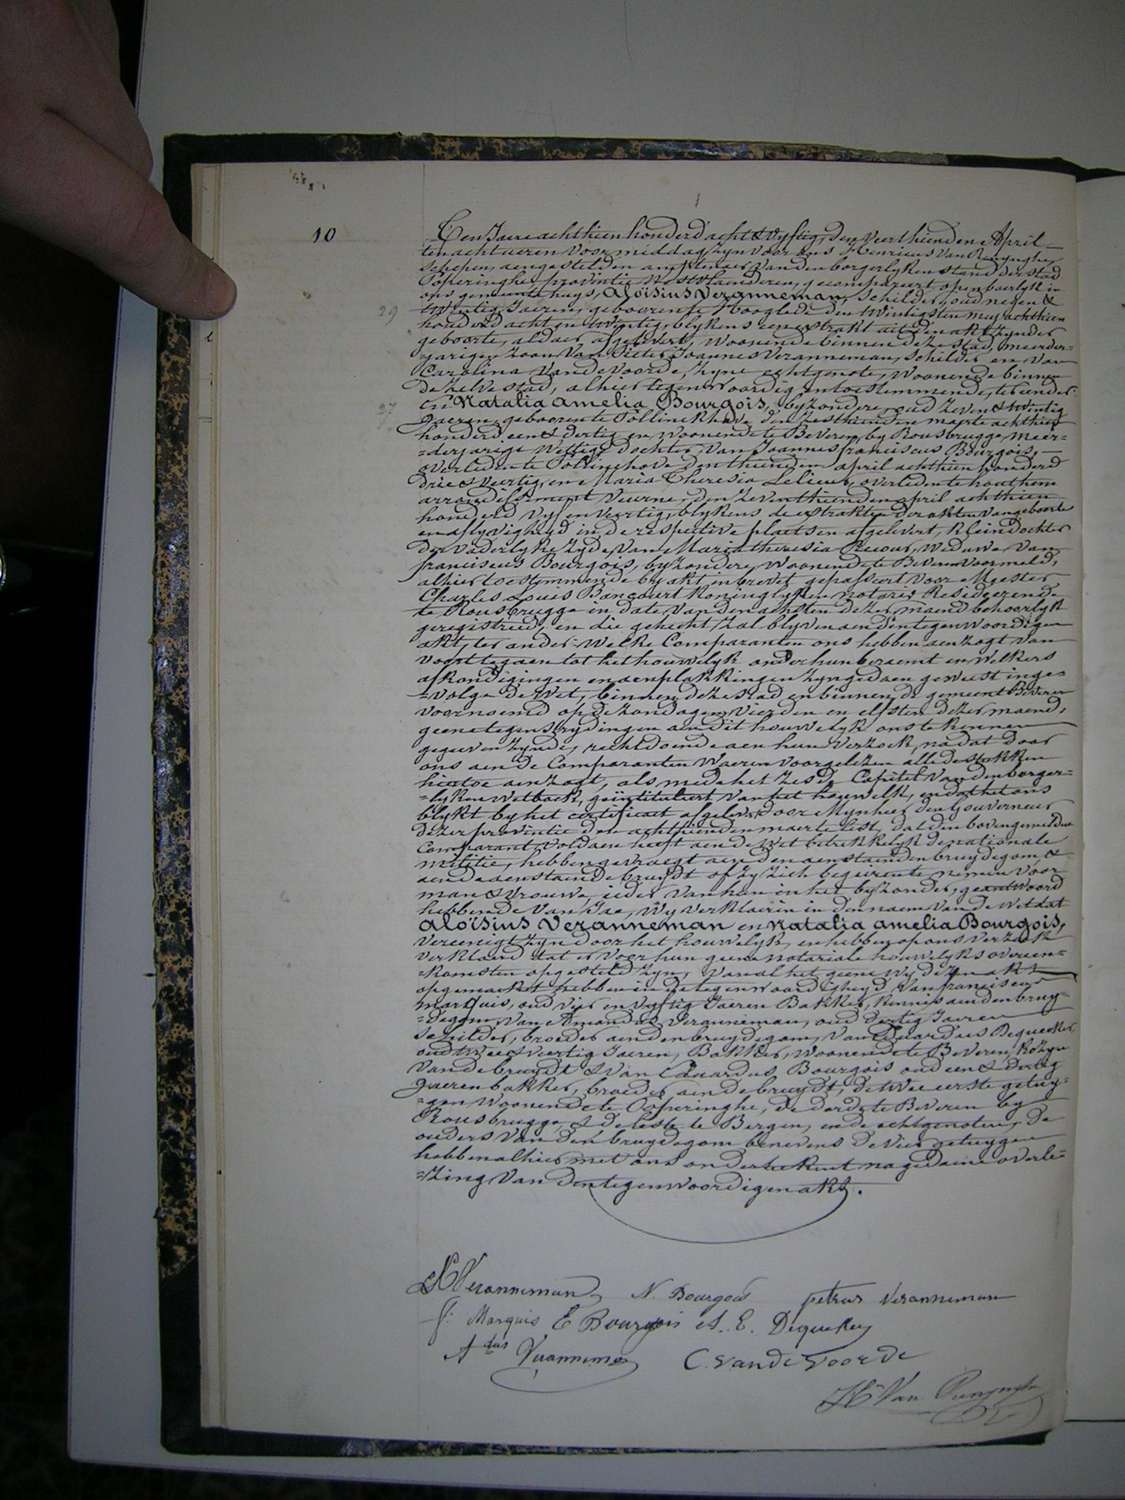 10
Ten Jaere achthien honderd acht & vyftig, den veerthienden April
ten acht uren voormiddag, zyn voor ons Henricus Van Renynghe,
schepen, aengestelden amptenaer van den borgerlyken stand der stad
Poperinghe provintie Westvlaenderen, gecompareert openbaerlyk in
ons gemeentehuys, Aloisius Veranneman, schilder, oud negen &
29
twintig Jaeren, geboren te Hooglede den twintigsten mey achthien
honderd acht en twintig, blykens een extrakt uit den akt zynder
geboorte, aldaer afgelevert, woonende binnen deze stad, meerder-
-jarigen zoon van Pieter Joannes Veranneman, schilder en van
Carolina Vandevoorde, zyne echtgenote, woonende binnen
dezelve stad, alhier tegenwoordig en toestemmende, ter eender
En Natalia Amelia Bourgois, byzondere, oud zeven & twintig
27
Jaeren, geboren te Pollinchove den zesthienden maerte achthien
honderd een & dertig en woonende te Beveren by Rousbrugge, meer-
-derjarige wettige dochter van Joannes franciscus Bourgois,
overleden te Pollinchove den thienden april achthien honderd
drie & veertig, en Maria Theresia Lelieur, overleden te houthem
arrondissement Veurne den zeventhienden april achthien
honderd vyf en veertig, blykens de extrakten der akten van geboorte
en aflyvigheyd in de respective plaetsen afgelevert, kleindochter
der vaderlyke zyde, van Maria theresia , weduwe van
franciscus Bourgois, byzondere, woonende te Beveren voormeld,
alhier toestemmende by akt en brevet gepasseert voor Meester
Charles Louis Bancourt koninglyken notaris Resideerende
te Rousbrugge in date van den achsten dezer maend behoorlyk
geregistreerd, en die gehecht zal blyven aen den tegenwoordigen
akt, ter ander: Welke Comparanten ons hebben aenzogt van
voort te gaen tot het houwelyk onder hun beraemt en welkers
afkondigingen en aenplakkingen zyn gedaen geweest inge-
-volge de wet, binnen deze stad en binnen de gemeente Beveren
voornoemd op de zondagen vierden en elfsten dezer maend,
geene tegenstrydingen aen dit houwelyk ons te kennen
gegeven zynde, rechtdoende aen hun verzoek, nadat door
ons aen de Comparanten waeren voorgelezen alle de stukken
hiertoe aenzogt, als mede het zesde Capitel van den borger-
-lyken wetboek, geïntituleert van het houwelyk, en dat het ons
blykt by het certificaet afgelevert door Mynheer den Gouverneur
dezer provintie den achtienden maerte lest, dat den bovengemelden
Comparant, voldaen heeft aen de wet betrekkelyk de nationale
militie, hebben gevraegt aen den aenstaenden bruydegom, &
aen de aenstaende bruydt of zy zich begeeren te nemen voor
man & vrouwe, ieder van hun in het byzonder, geantwoord
hebbende van Jae, Wy verklaeren in den naem van de wet dat
Aloïsius Veranneman en Natalia Amelia Bourgois,
vereenigt zyn door het houwelyk, en hebben op ons verzoek
verklaerd dat er voor hun geene notariale houwelyks overeen-
-komsten opgesteld zyn, van al het geene wy dezen akt
opgemaekt hebben in de tegenwoordigheyd van franciscus
marquis, oud vier en vyftig Jaeren Bakker, kennis aen den bruy-
-degom, van Amandus Veranneman, oud dertig Jaeren
schilder, broeder aen den bruydegom, van Eduardus Dequeker
oud twee & veertig Jaeren, Bakker, woonende te Beveren, kozyn
van de bruydt & van Eduardus Bourgois oud een & dertig
Jaeren bakker, broeder aen de bruydt, de twee eerste getuy-
-gen woonende te Poperinghe, de derde te Beveren by
Rousbrugge, & de leste te Bergen, en de echtgenoten, de
ouders van den bruydegom benevens de vier getuygen
hebben alhier met ons onderteekent na gedaene overle-
-zing van den tegenwoordigen akt.
Veranneman N. Bourgois petrus Veranneman
f: Marquis E Bourgois E. Dequeker
Adus Veranneman C. Vandevoorde
Hri Van Renynghe